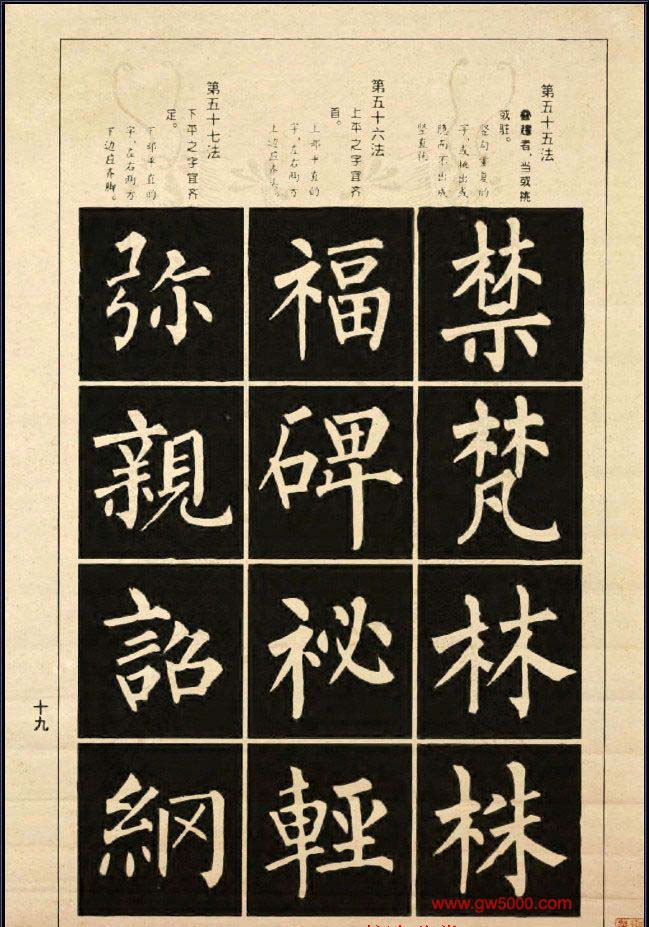 第五十五法
叠趯者，当或挑
或驻。
竖勾重复的
字，或挑出或
驻而不出或
竖直的
禁
梵
林
株
第五十六法
上平之字宜齐
首。
上部平直的
字，左右两方
上边应齐头。
福
碑
祕
輕
第五十七法
下平之字宜齐
足。
下部平直的
字，左右两方
下边应齐脚。
弥
親
詔
綱
十九
www.gw5000.com